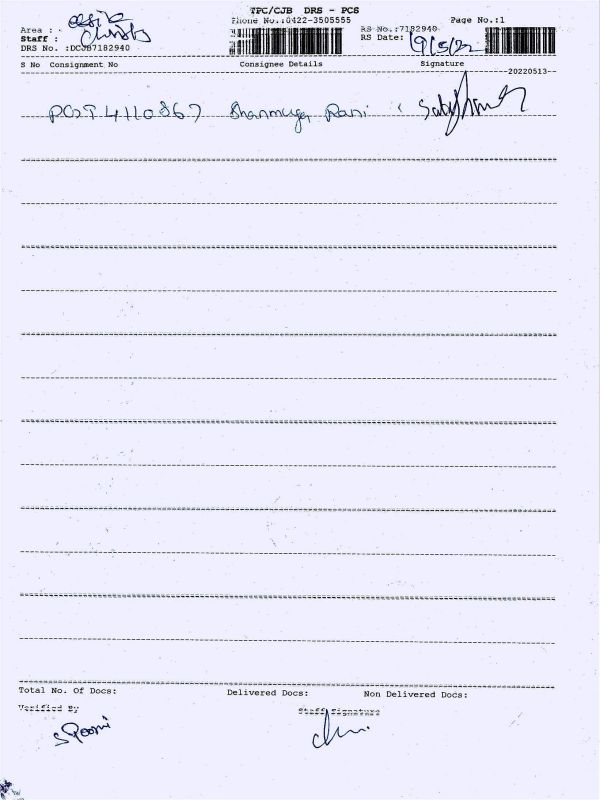 TPC/CJB DRS - PCS
Phone No.:0422-3505555
Page No.:1
Area :
Staff :
DRS No. :DCJB7182940
RS No.:7182940
RS Date: 19/5/22
S No Consignment No Consignee Details Signature
20220513
POST4110867 Shanmuga Rani
Total No. Of Docs: Delivered Docs: Non Delivered Docs:
Verified By Staff Signature